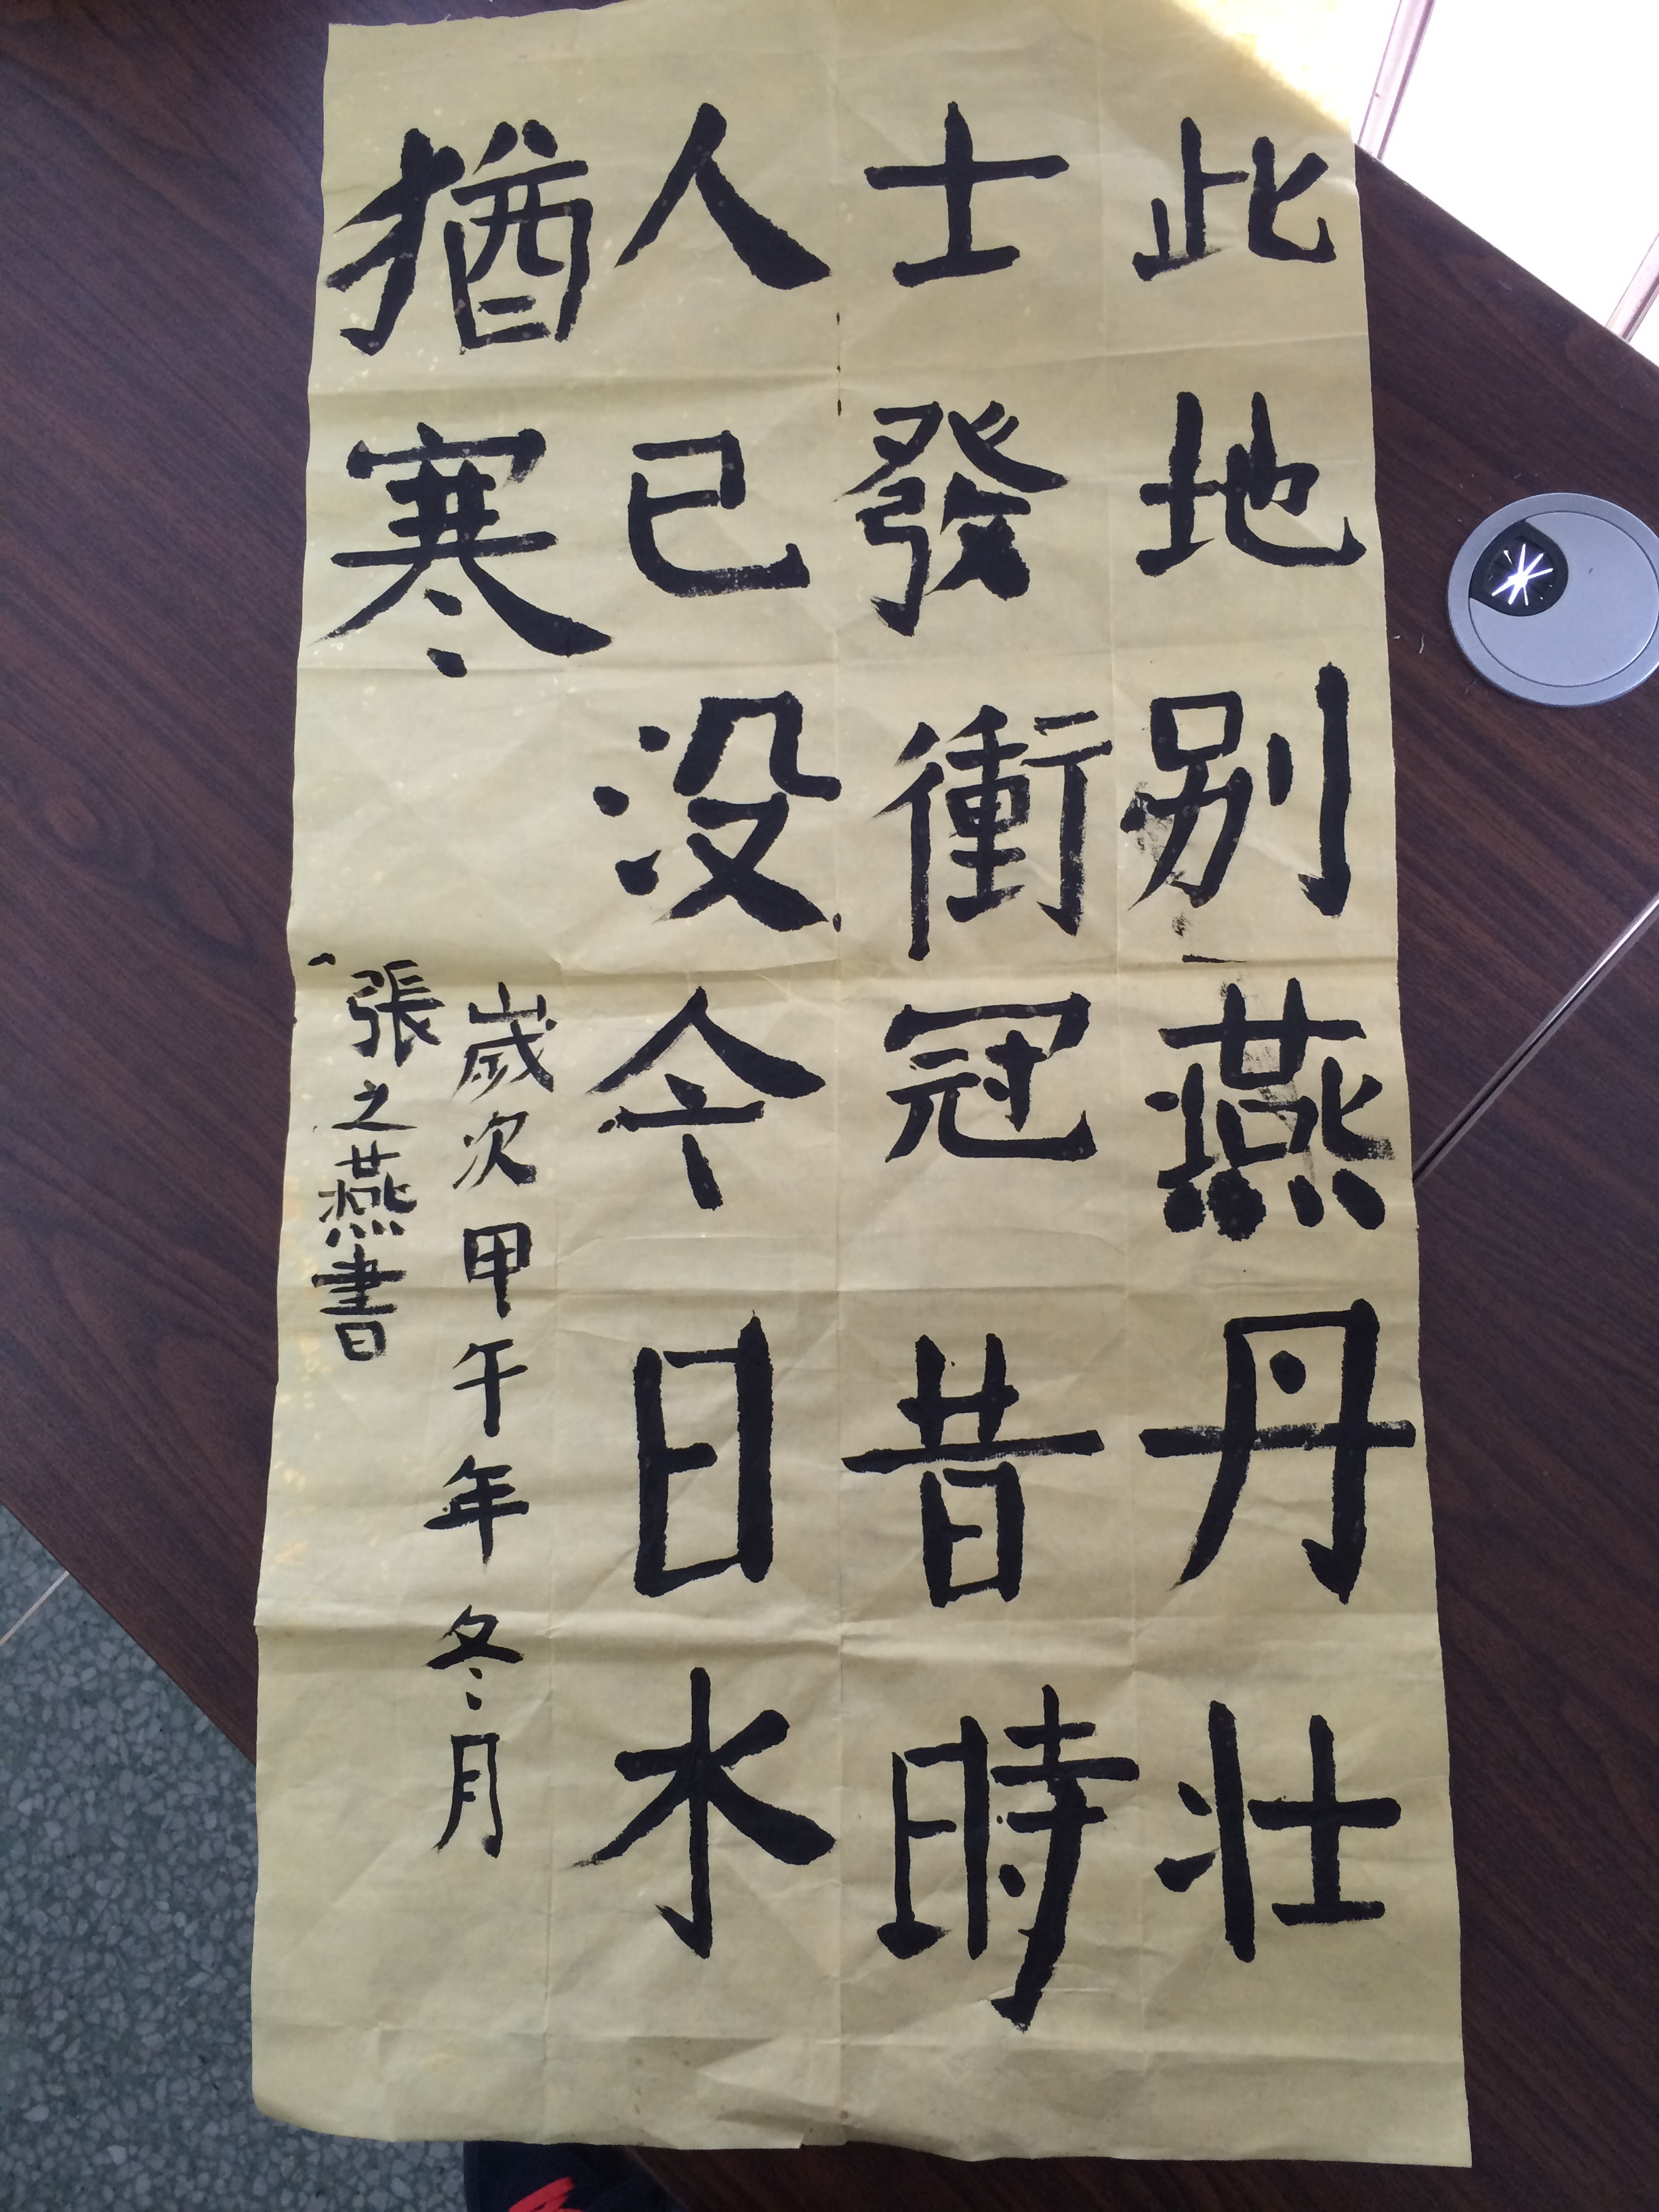 此地别燕丹壮
士發衝冠昔時
人已没今日水
猶寒
歲次甲午年冬月
張之燕書